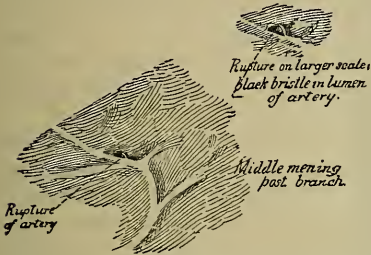 Rupture on larger scale:
black bristle in lumen
of artery.
Middle mening
post branch.
Rupture
of artery